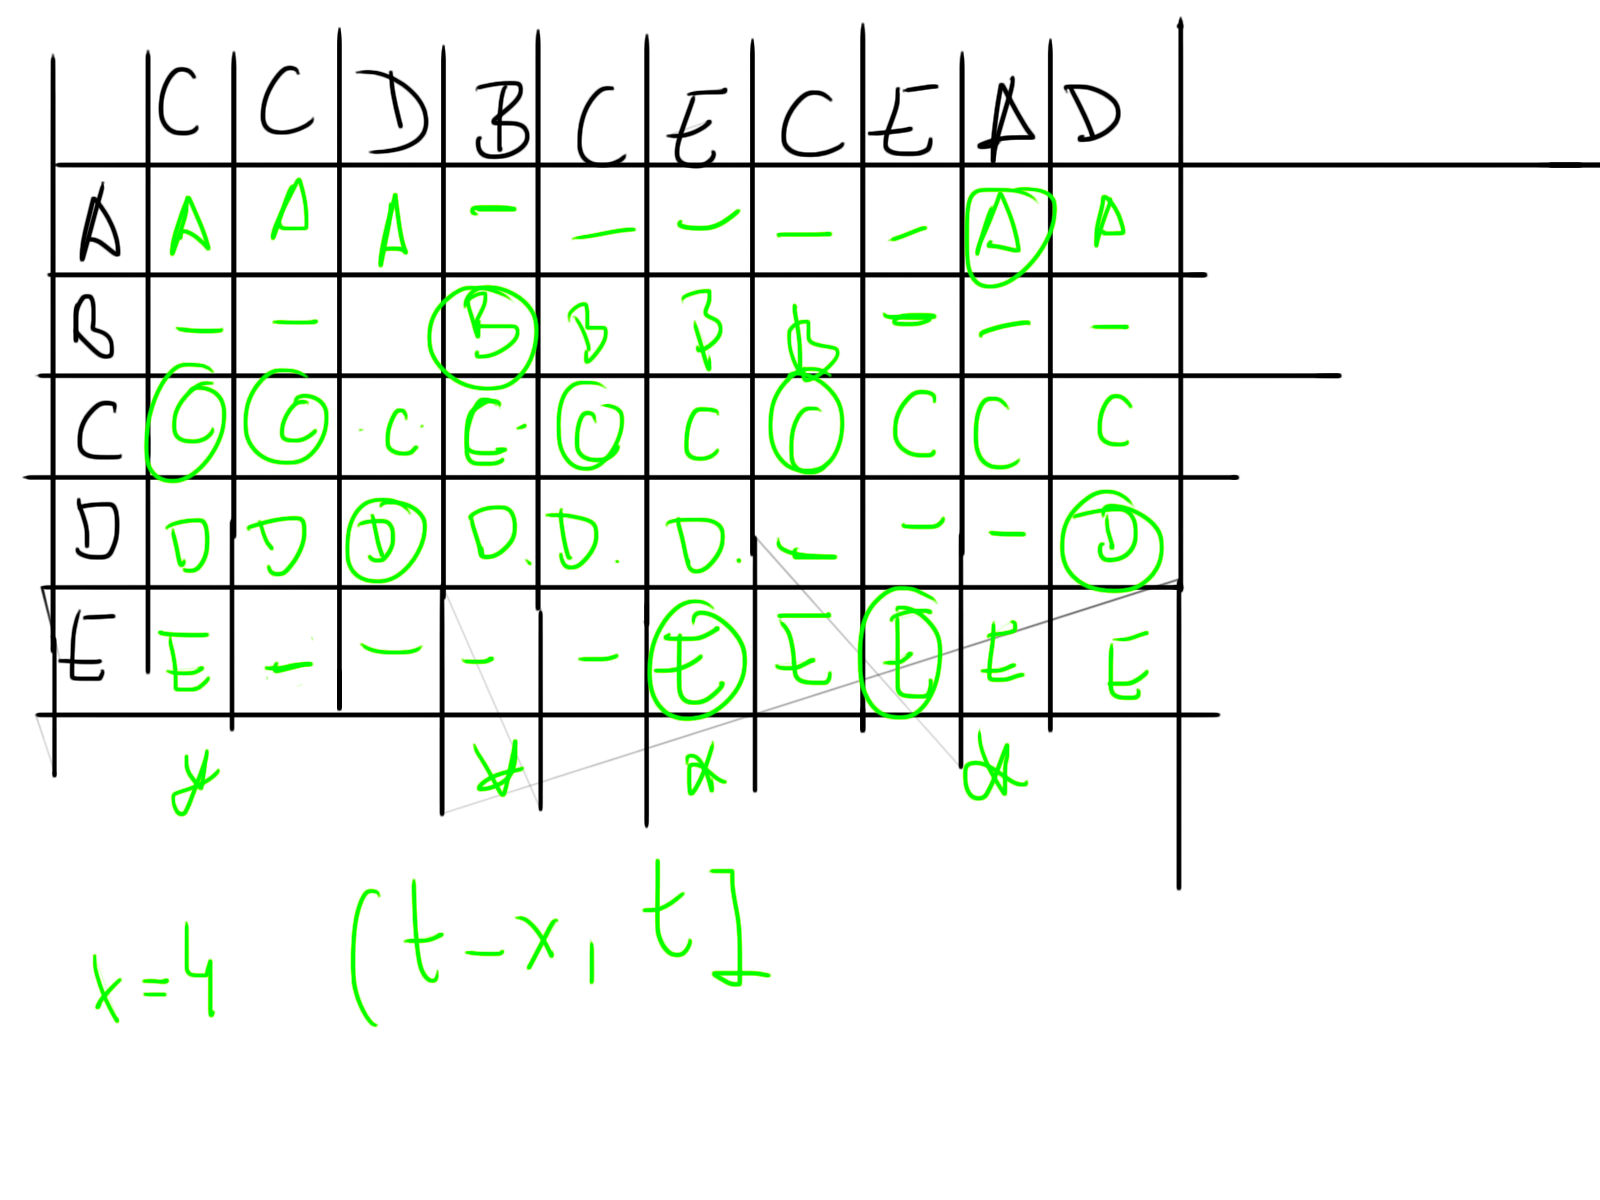 C C D B C E C E A D
A A A A - - - - - A A
B - - B B B B - - -
C C C C C C C C C C C
D D D D D D D - - - D
E E - - - - E E E E E
x=4 (t-x, t]